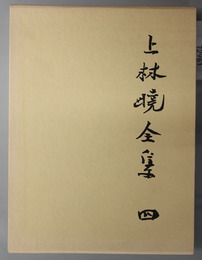 上林暁全集 四